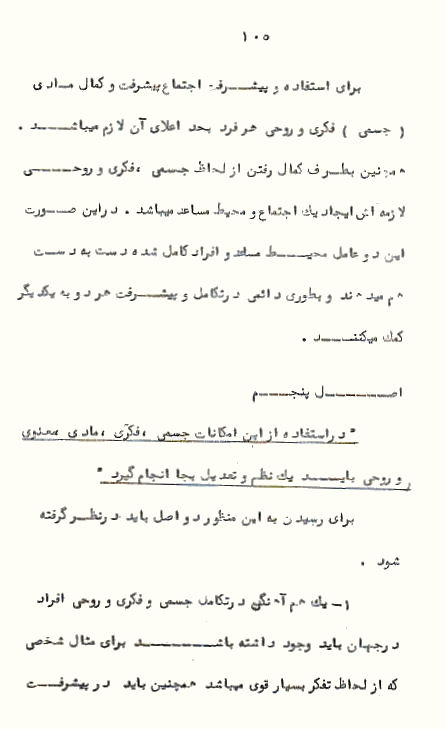 ۱۰۵
برای استفاده و پیشرفت اجتماع پیشرفت و کمال مادی
( جسمی ) فکری و روحی هر فرد بحد اعلای آن لازم میباشد .
همچنین بطرف کمال رفتن از لحاظ جسمی ، فکری و روحی
لازمه اش ایجاد یك اجتماع و محیط مساعد میباشد . در این صورت
این دو عامل محیط مساعد و افراد کامل شده دست به دست
هم میدهند و بطوری دائمی در تکامل و پیشرفت هر دو به یکدیگر
کمك میکنند .
اصل پنجم
" در استفاده از این امکانات جسمی ، فکری ، مادی ، معنوی
و روحی باید یك نظم و تعدیل بجا انجام گیرد "
برای رسیدن به این منظور دو اصل باید در نظر گرفته
شود .
۱- یك هم آهنگی در تکامل جسمی و فکری و روحی افراد
در جهان باید وجود داشته باشد برای مثال شخصی
که از لحاظ تفکر بسیار قوی میباشد همچنین باید در پیشرفت